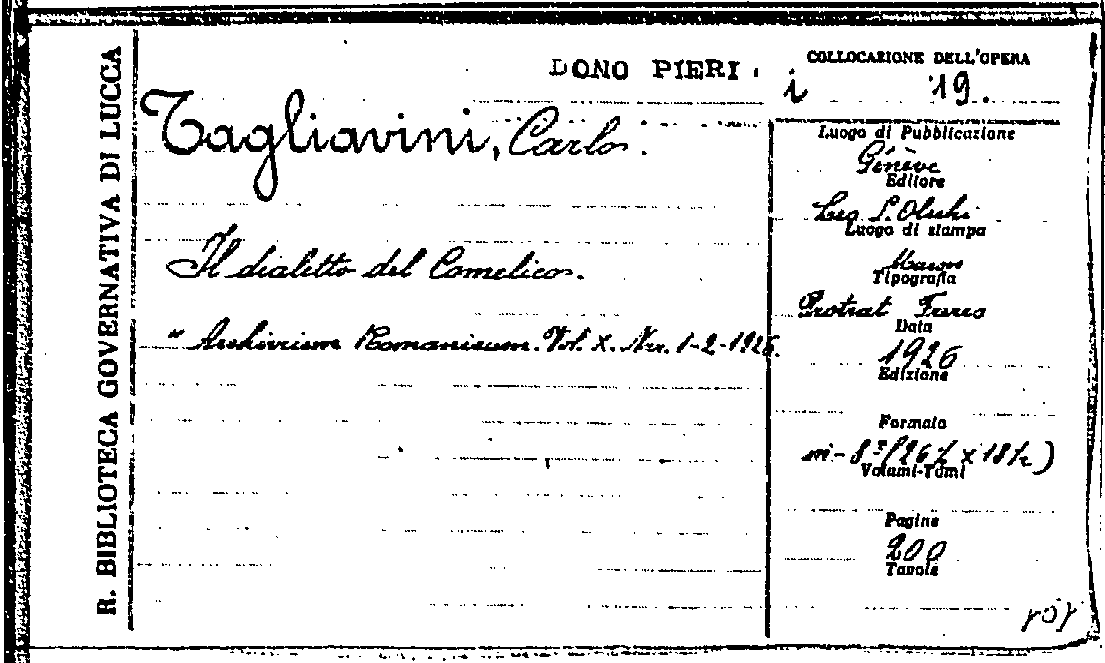 R. BIBLIOTECA GOVERNATIVA DI LUCCA
DONO PIERI.
COLLOCAZIONE DELL'OPERA
i 19.
Tagliavini, Carlo.
Il dialetto del Comelico.
" Archivium Romanicum. Vol. X. Nr. 1-2-1926.
Luogo di Pubblicazione
Génève
Editore
Leo S. Olschi
Luogo di stampa
Tipografia
Protrat Frères
Data
1926
Edizione
Formato
in-8º (26½ x 18½)
Volumi-Tomi
Pagine
200
Tavole